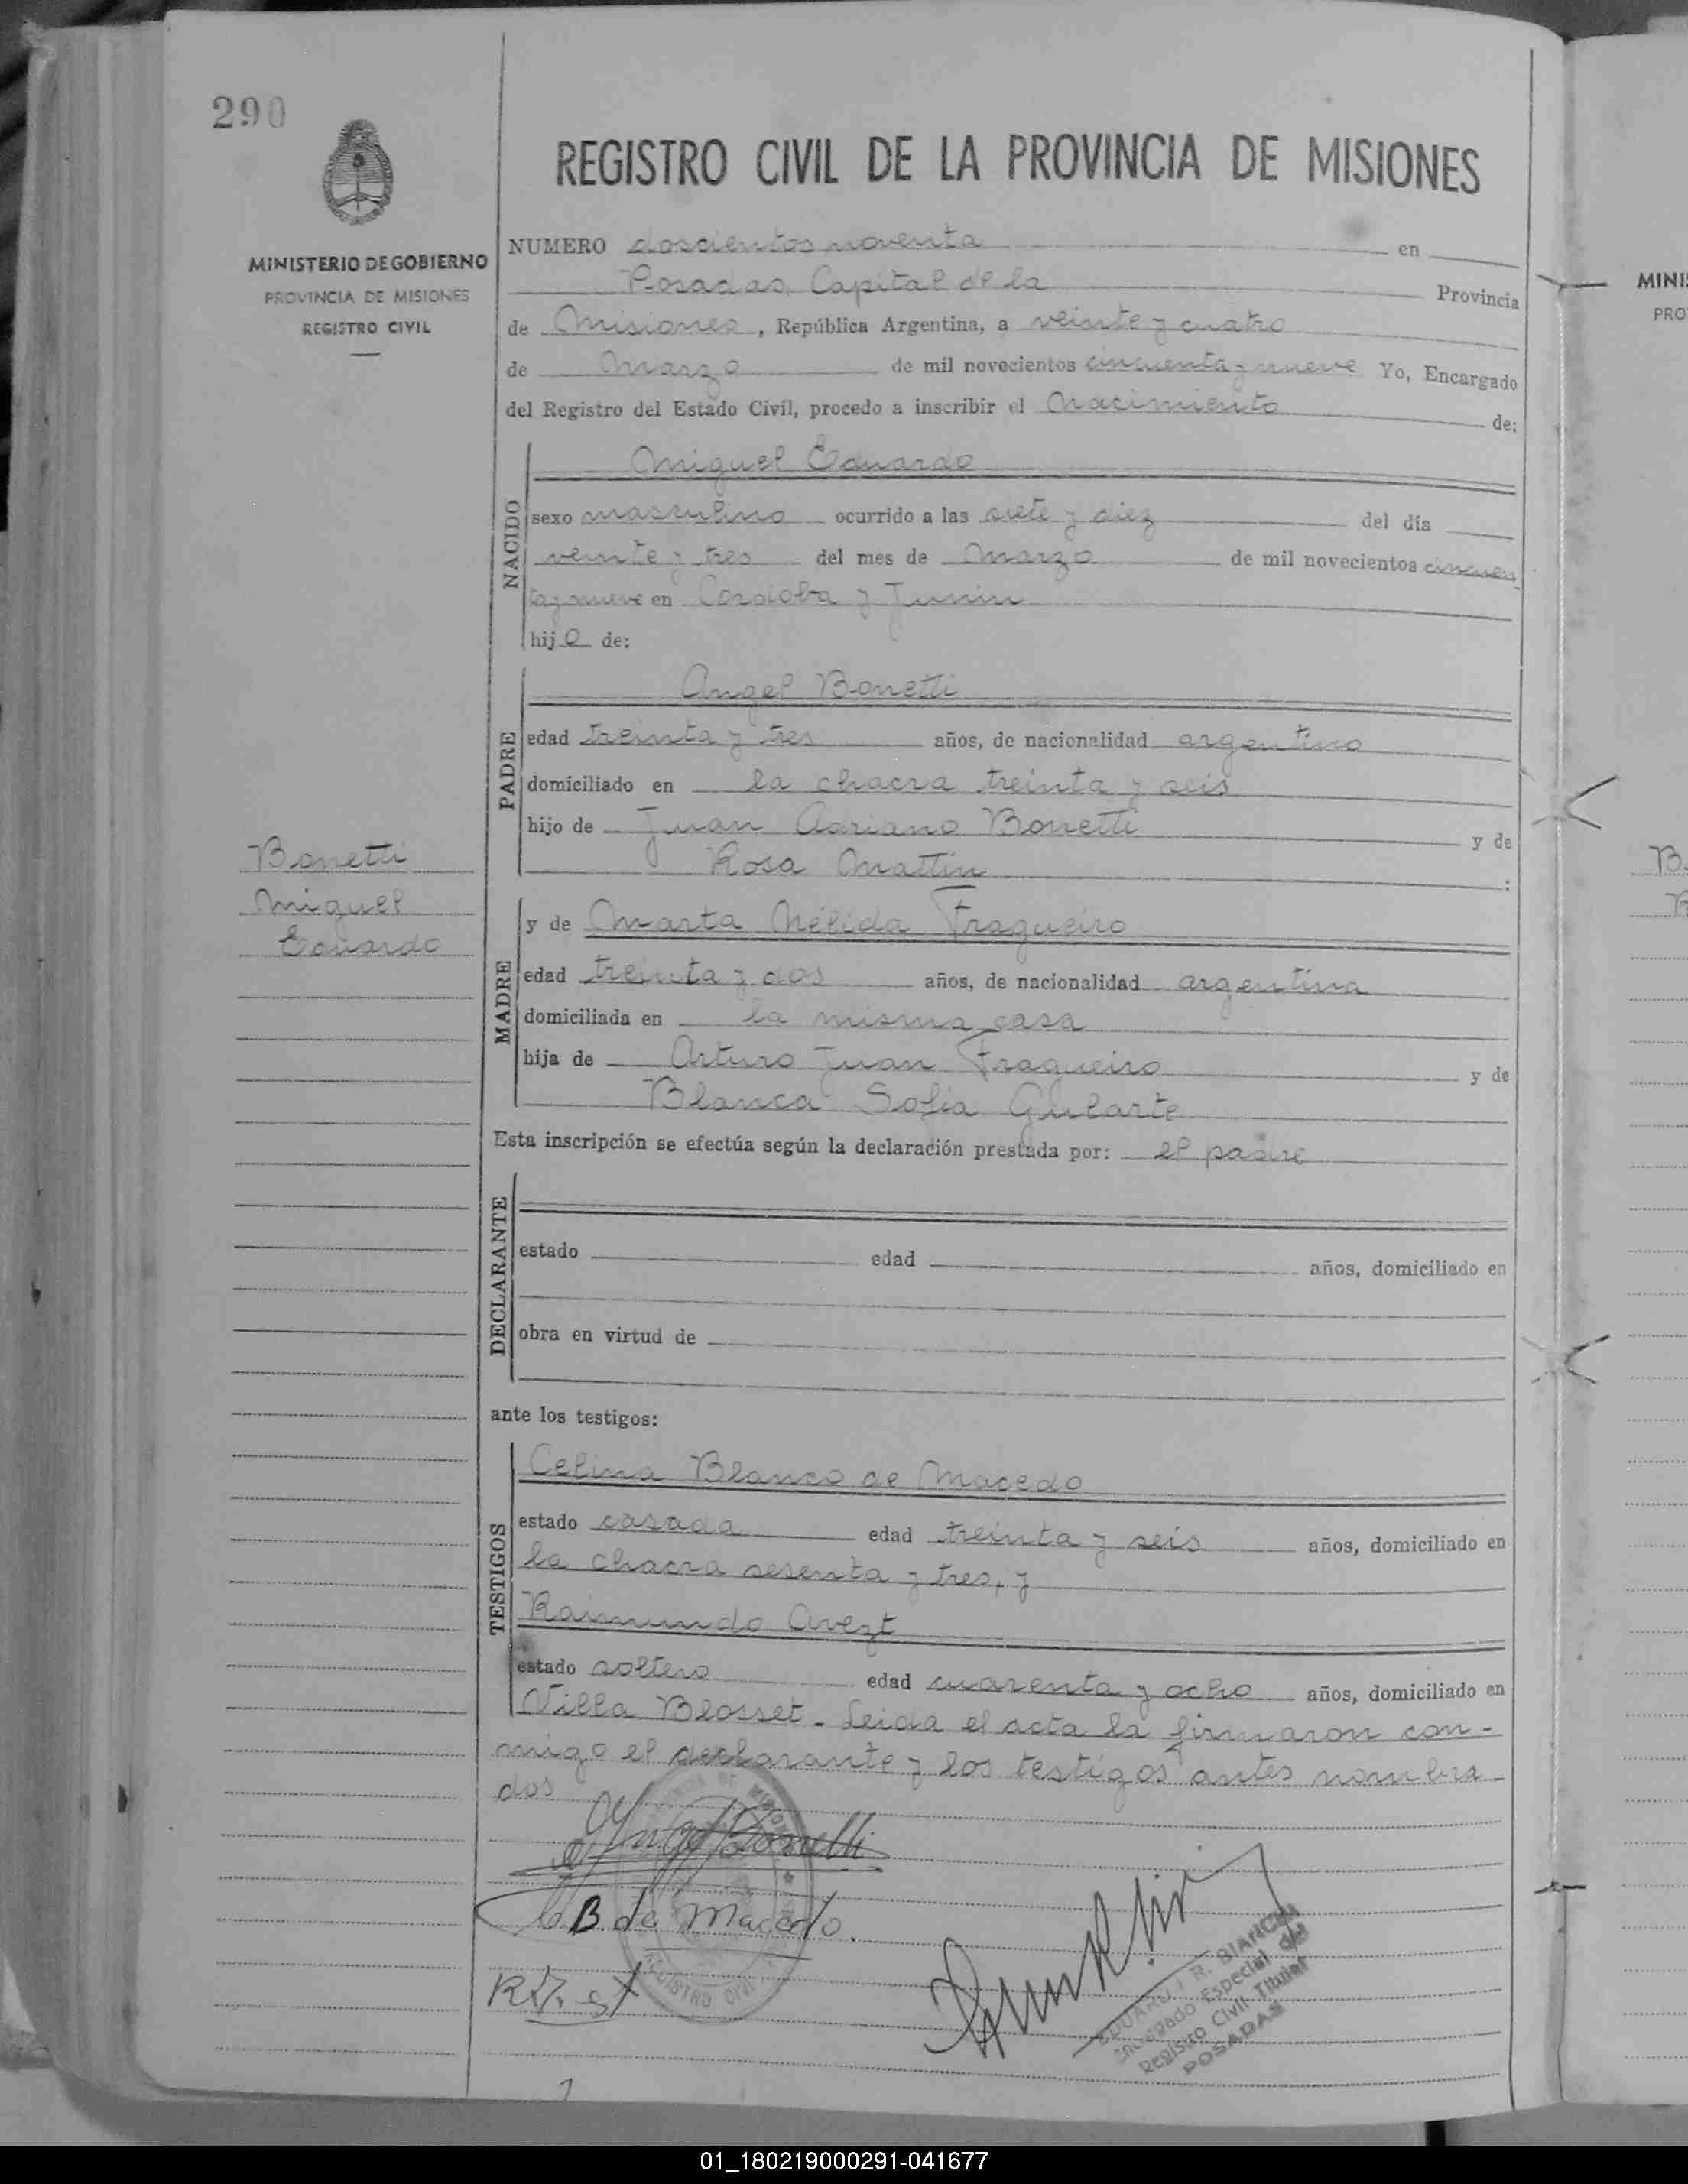 290
REGISTRO CIVIL DE LA PROVINCIA DE MISIONES
MINISTERIO DE GOBIERNO
PROVINCIA DE MISIONES
REGISTRO CIVIL
NUMERO doscientos noventa en
Posadas, Capital de la Provincia
de Misiones, República Argentina, a veinte y cuatro
de Marzo de mil novecientos cincuenta y nueve Yo, Encargado
del Registro del Estado Civil, procedo a inscribir el Nacimiento de:
NACIDO
Miguel Eduardo
sexo masculino ocurrido a las siete y diez del día
veinte y tres del mes de Marzo de mil novecientos cincuen
ta y nueve en Cordoba y Junin
hijo de:
PADRE
Angel Bonetti
edad treinta y tres años, de nacionalidad argentino
domiciliado en la chacra treinta y seis
hijo de Juan Adriano Bonetti y de
Rosa Mattin :
Bonetti
Miguel
Eduardo
MADRE
y de Marta Nélida Fragueiro
edad treinta y dos años, de nacionalidad argentina
domiciliada en la misma casa
hija de Arturo Juan Fragueiro y de
Blanca Sofia Gularte
Esta inscripción se efectúa según la declaración prestada por: el padre
DECLARANTE
estado edad años, domiciliado en
obra en virtud de
ante los testigos:
TESTIGOS
Celina Blanco de Macedo
estado casada edad treinta y seis años, domiciliado en
la chacra sesenta y tres, y
Raimundo Arezt
estado soltero edad cuarenta y ocho años, domiciliado en
Villa Blosset - Leida el acta la firmaron con-
migo el declarante y los testigos antes nombra
dos
Angel Bonetti
B de Macedo.
EDUARDO R. BIANCHI
Encargado Especial del
Registro Civil Titular
POSADAS
REGISTRO CIVIL
MINIS
PRO
01_180219000291-041677